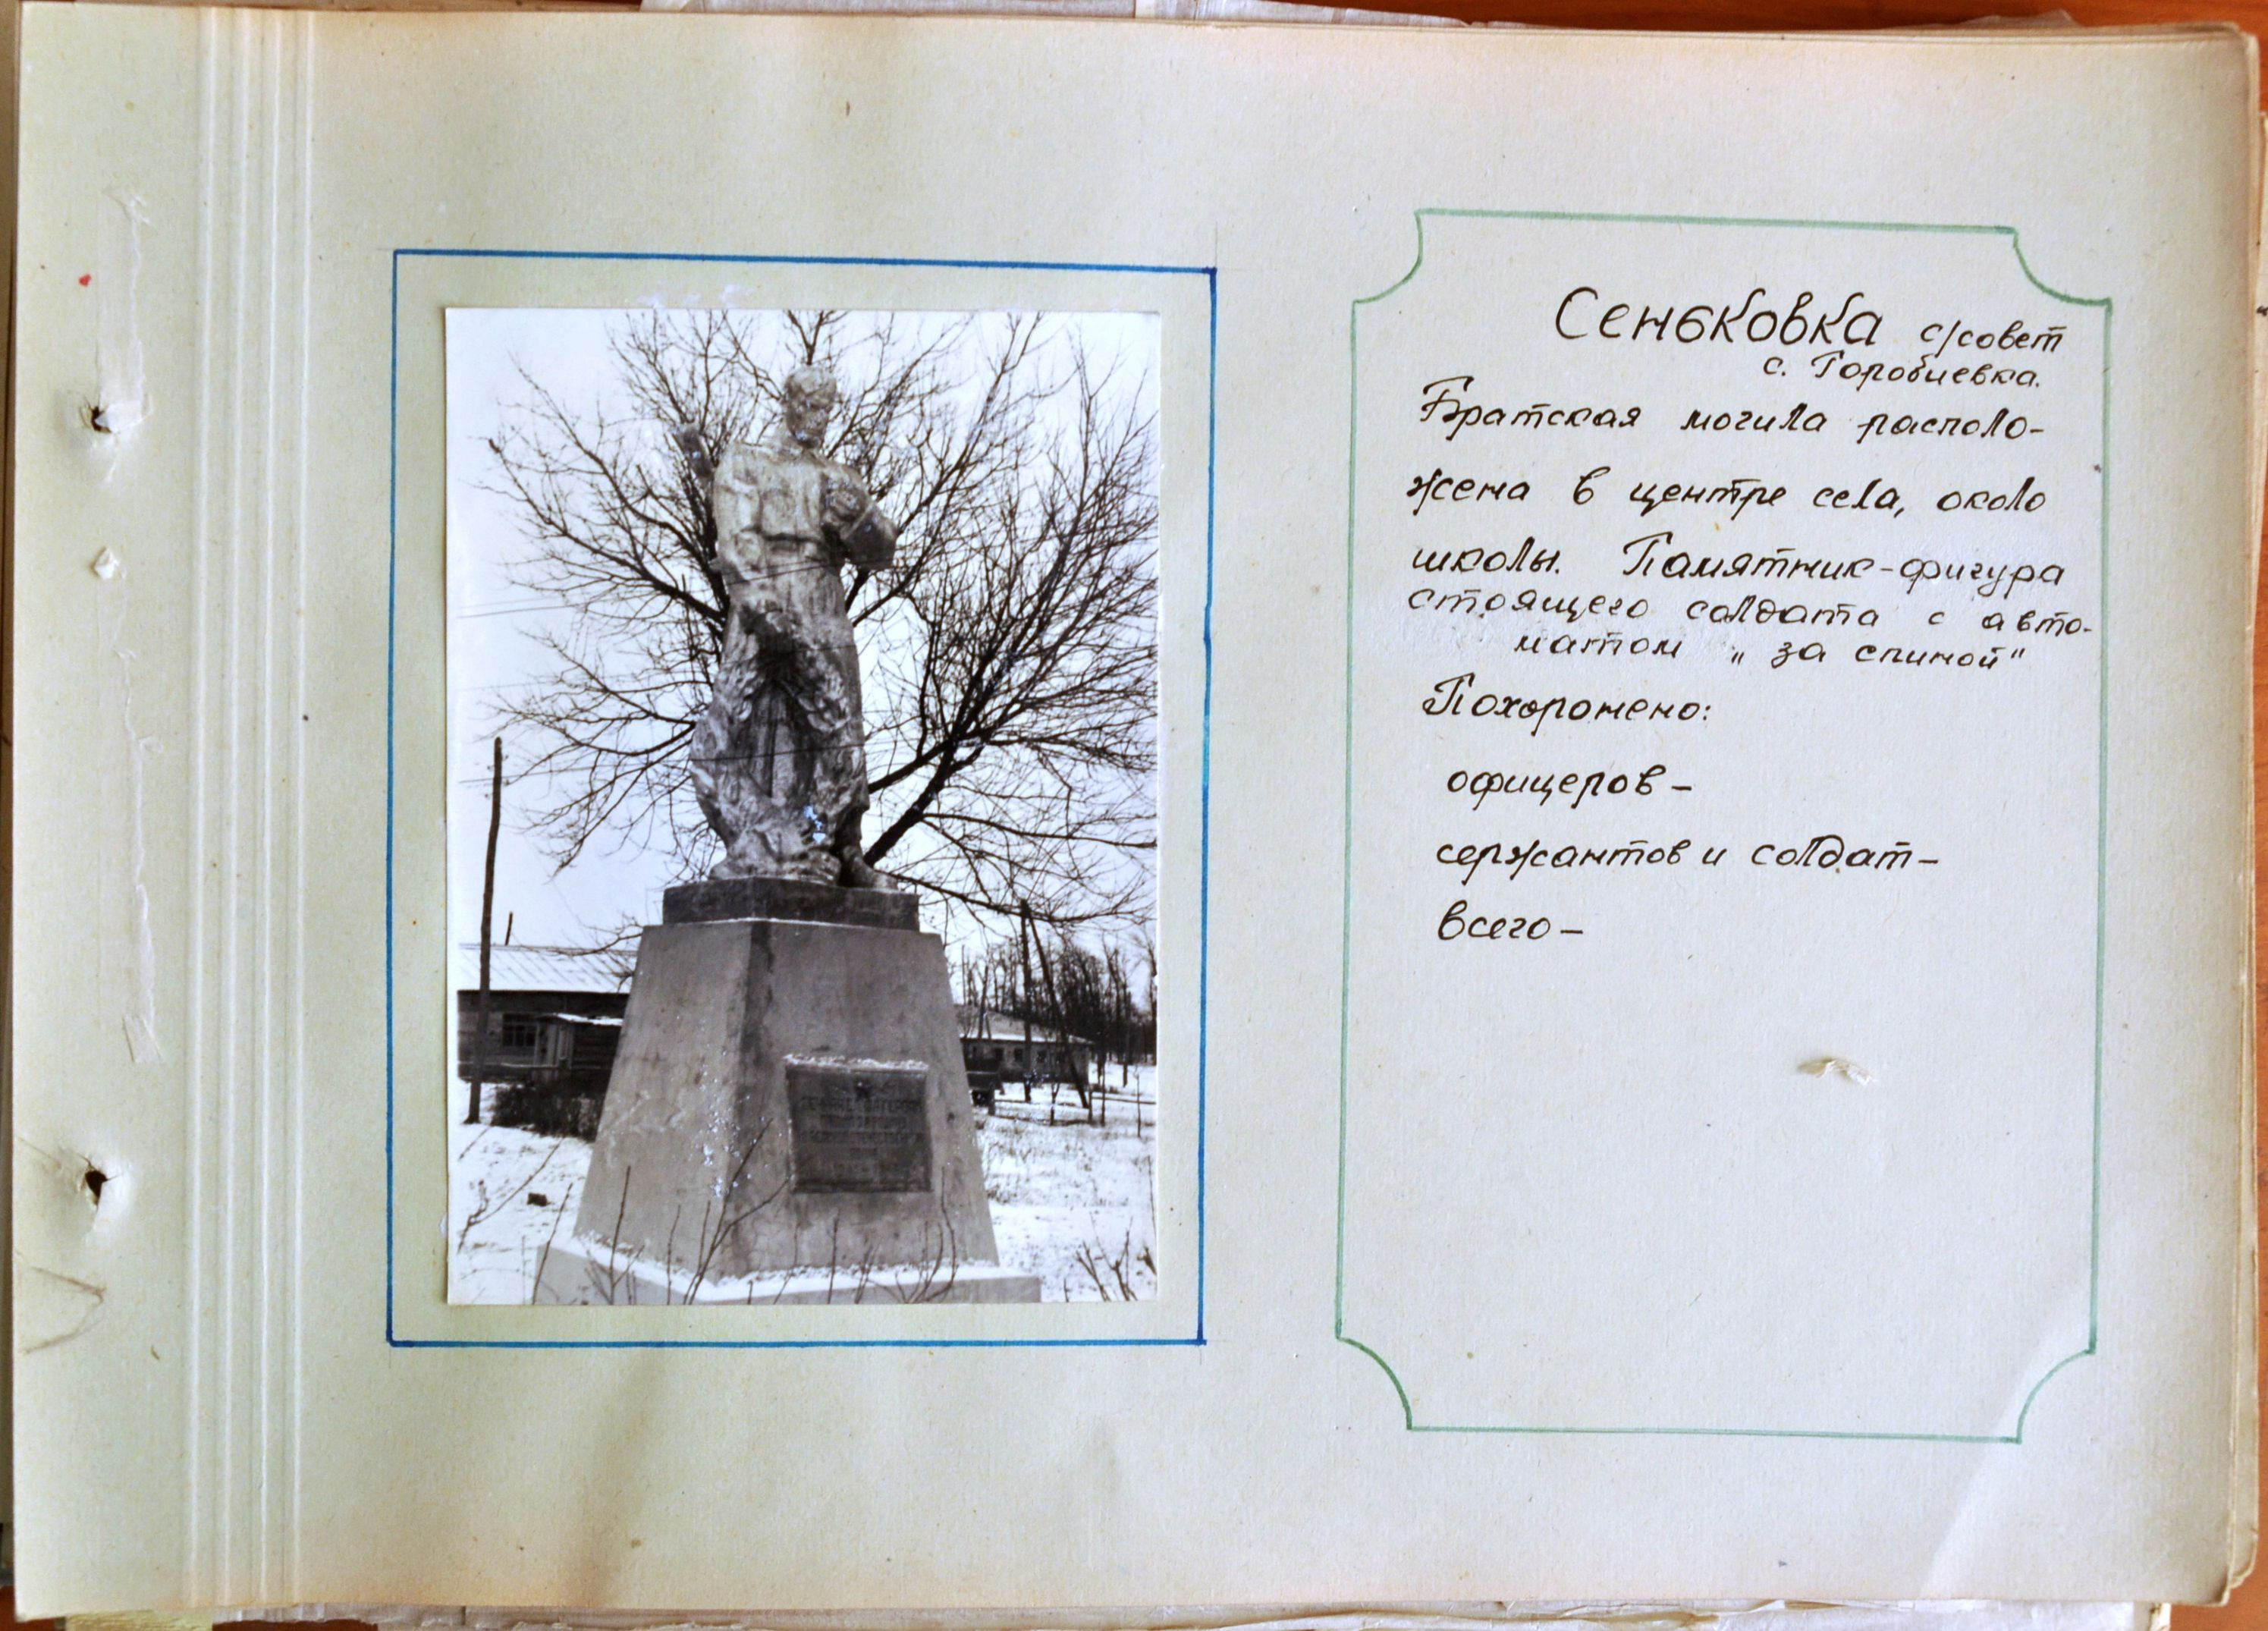 Сеньковка с/совет
с. Горобиевка.
Братская могила располо-
жена в центре села, около
школы. Памятник-фигура
стоящего солдата с авто-
матом „за спиной"
Похоронено:
офицеров –
сержантов и солдат –
всего –